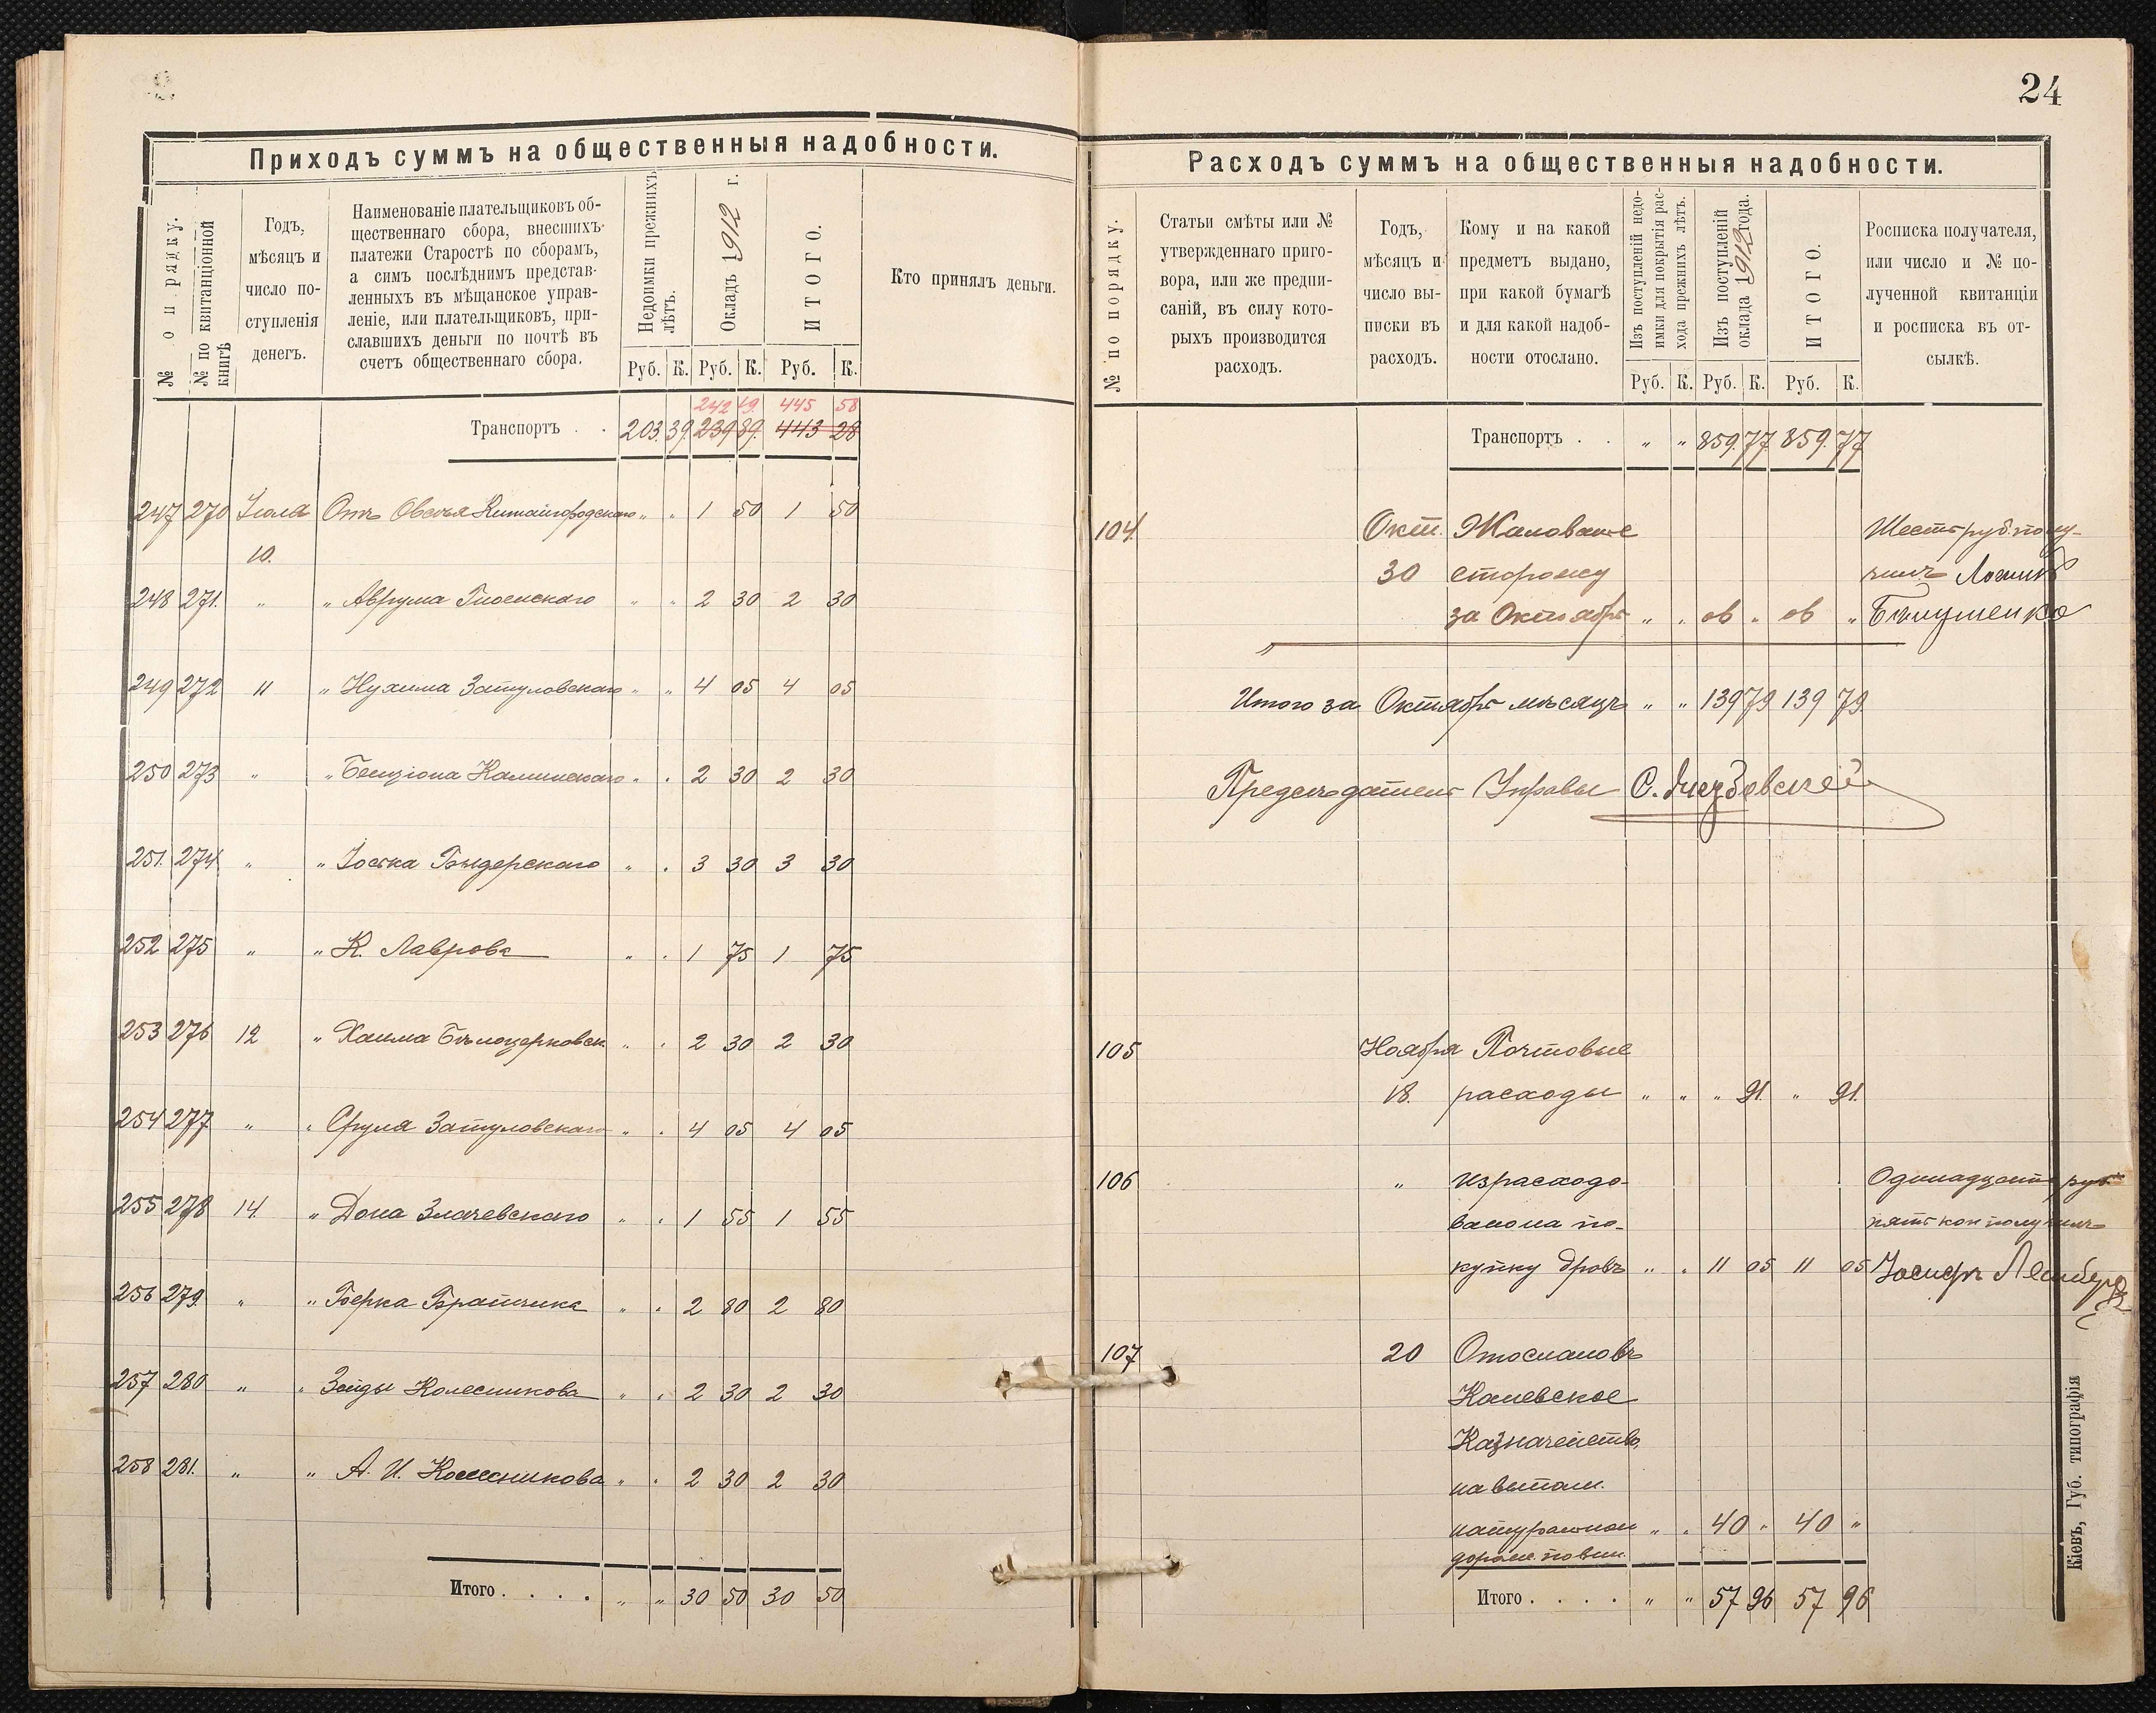 Приходъ суммъ на общественныя надобности.
№ по рядку.
№ по квитанціонной книгѣ
Годъ,
мѣсяцъ и
число по-
ступленія
денегъ.
Наименованіе плательщиковъ об-
щественнаго сбора, внесшихъ
платежи Старостѣ по сборамъ,
а симъ послѣднимъ представ-
ленныхъ въ мѣщанское управ-
леніе, или плательщиковъ, при-
славшихъ деньги по почтѣ въ
счетъ общественнаго сбора.
Недоимки прежнихъ лѣтъ.
Окладъ 1912 г.
ИТОГО.
Кто принялъ деньги.
Руб. К. Руб. К. Руб. К.
242 19. 445 58
Транспортъ . . 203. 39. 239 89. 443 28
247 270 Іюля Отъ Овсея Китайгородскаго " " 1 50 1 50
10.
248 271. " " Аврума " " 2 30 2 30
249 272 11 " Нухима Затуловскаго " " 4 05 4 05
250 273 " " Бенціона Каминскаго " " 2 30 2 30
251. 274 " " Іоська " " 3 30 3 30
252 275 " " К. Лаврова " " 1 75 1 75
253 276 12 " Хаима Бѣлоцерковск. " " 2 30 2 30
254 277 " " Сруля Затуловскаго " " 4 05 4 05
255 278 14. " Дона Злачевскаго " " 1 55 1 55
256 279. " " Берка Братчика " " 2 80 2 80
257 280 " " Зейды Колесникова " " 2 30 2 30
258 281. " " А. И. Колесникова " " 2 30 2 30
Итого . . . . " " 30 50 30 50
24
Расходъ суммъ на общественныя надобности.
№ по порядку.
Статьи смѣты или №
утвержденнаго приго-
вора, или же предпи-
саній, въ силу кото-
рыхъ производится
расходъ.
Годъ,
мѣсяцъ и
число вы-
писки въ
расходъ.
Кому и на какой
предметъ выдано,
при какой бумагѣ
и для какой надоб-
ности отослано.
Изъ поступленій недо-
имки для покрытія рас-
хода прежнихъ лѣтъ.
Изъ поступленій
оклада 1912 года.
ИТОГО.
Росписка получателя,
или число и № по-
лученной квитанціи
и росписка въ от-
сылкѣ.
Руб. К. Руб. К. Руб. К.
Транспортъ . . " " 859. 77. 859. 77
104. Окт. Жалованье Шесть руб. полу-
30 сторожу чилъ
за Октябрь " " 06 " 06 "
Итого за Октябрь мѣсяцъ " " 139 79 139 79.
Предсѣдатель Управы
105 Ноября Почтовые
18. расходы " " " 91. " 91.
106 " Израсходо- Одинадцать руб
вано на по- пять коп получилъ
купку дровъ " " 11 05 11 05 Іосифъ
107 20 Отослано въ
Каневское
Казначейство
натуральной " " 40 " 40 "
дорож. повин.
Итого . . . . " " 57 96 57 96
Кіевъ, Губ. типографія